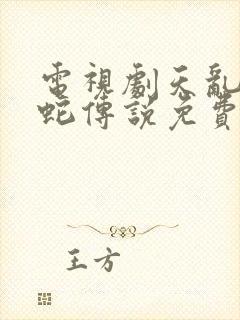 電視劇天亂
蛇傳說免費
王方